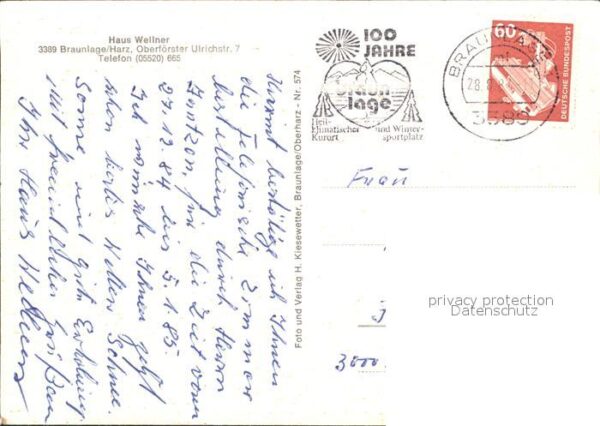 Haus Wellner
3389 Braunlage/Harz, Oberförster Ulrichstr. 7
Telefon (05520) 665
Hiermit bestätige ich Ihnen
die telefonische Zimmer
bestellung durch Herrn
für die Zeit vom
27.12.84 bis 5.1.85.
Ich wünsche Ihnen jetzt
schon Schnee
Sonne und gute Erholung.
Mit freundlichen Grüßen
Ihr Haus Wellner
Foto und Verlag H. Kiesewetter, Braunlage/Oberharz - Nr. 574
100
JAHRE
braun
lage
Heil-
klimatischer
Kurort
und Winter-
sportplatz
BRAUNLAGE
28.8
3389
60
DEUTSCHE BUNDESPOST
Frau
3000
privacy protection
Datenschutz